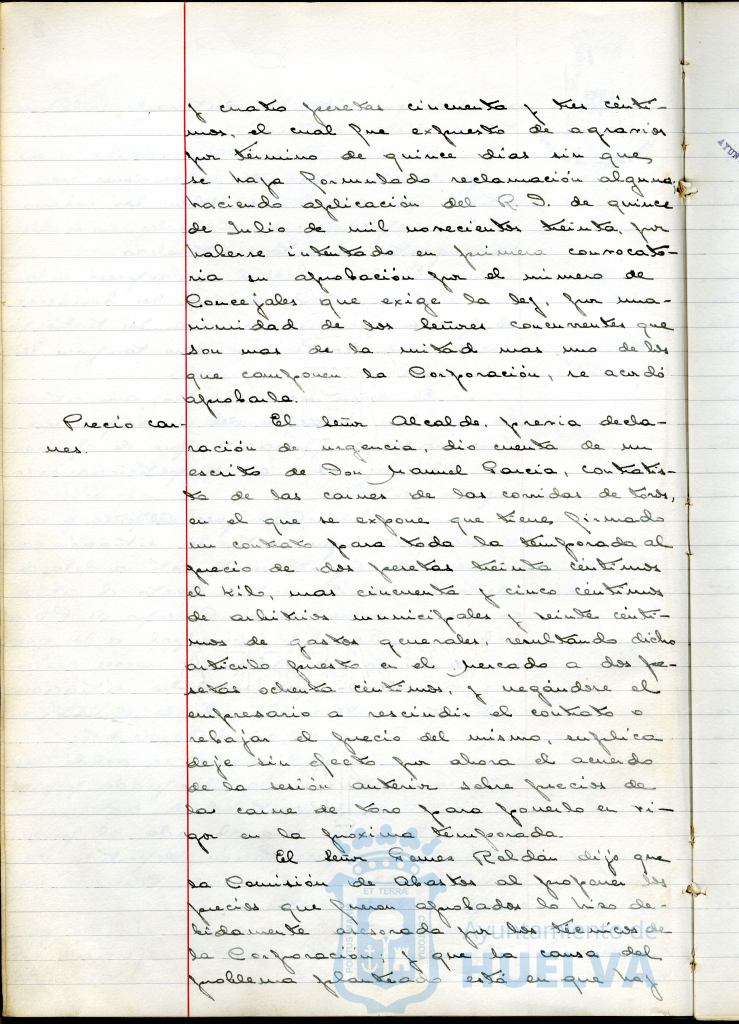 y cuatro pesetas cincuenta y tres cénti-
mos, el cual fue expuesto de agravios
por término de quince días sin que
se haya formulado reclamación alguna,
haciendo aplicación del R. D. de quince
de Julio de mil novecientos treinta, por
haberse intentado en primera convocato-
ria su aprobación por el número de
Concejales que exige la ley, por una-
nimidad de los Señores concurrentes que
son mas de la mitad mas uno de los
que componen la Corporación, se acordó
aprobarla.
Precio car-
nes.
El Señor Alcalde, previa decla-
ración de urgencia, dio cuenta de un
escrito de Don Manuel García, contratis-
ta de las carnes de las corridas de toros,
en el que se expone que tiene firmado
un contrato para toda la temporada al
precio de dos pesetas treinta céntimos
el kilo, mas cincuenta y cinco céntimos
de arbitrios municipales y veinte cénti-
mos de gastos generales, resultando dicho
artículo puesto en el Mercado a dos pe-
setas ochenta céntimos, y negándose el
empresario a rescindir el contrato o
rebajar el precio del mismo, suplica
deje sin efecto por ahora el acuerdo
de la sesión anterior sobre precios de
la carne de toro para ponerlo en vi-
gor en la próxima temporada.
El Señor Roldán dijo que
la Comisión de Abastos al proponer los
precios que fueron aprobados lo hizo de-
bidamente asesorada por los técnicos de
la Corporación; y que la causa del
problema planteado está en que hay
ET TERRÆ
PORTUS
CUSTODIA
Ayuntamiento de
HUELVA
AYUN